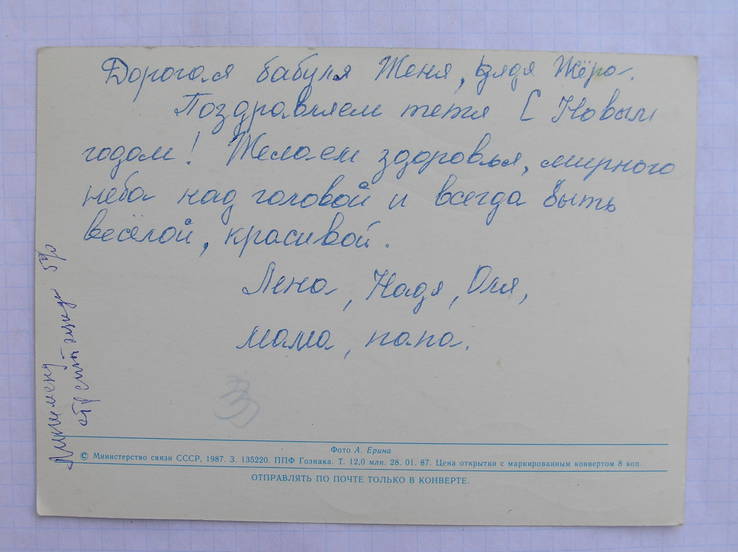 Дорогая бабуля Женя, дядя Жёра.
Поздравляем тетя С Новым
годом! Желаем здоровья, мирного
неба над головой и всегда быть
весёлой, красивой.
Лена, Надя, Оля,
мама, папа.
Фото А. Ерина
© Министерство связи СССР, 1987. З. 135220. ППФ Гознака. Т. 12,0 млн. 28. 01. 87. Цена открытки с маркированным конвертом 8 коп.
ОТПРАВЛЯТЬ ПО ПОЧТЕ ТОЛЬКО В КОНВЕРТЕ.